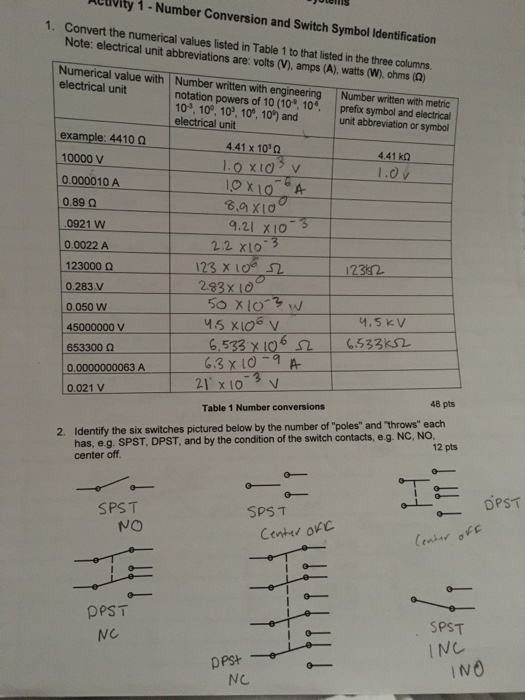 Activity 1 - Number Conversion and Switch Symbol Identification
1. Convert the numerical values listed in Table 1 to that listed in the three columns.
Note: electrical unit abbreviations are: volts (V), amps (A), watts (W), ohms (Ω)
Numerical value with electrical unit
Number written with engineering notation powers of 10 (10⁻⁹, 10⁻⁶, 10⁻³, 10⁰, 10³, 10⁶, 10⁹) and electrical unit
Number written with metric prefix symbol and electrical unit abbreviation or symbol
example: 4410 Ω 4.41 x 10³ Ω 4.41 kΩ
10000 V 1.0 x10³ V 1.0 V
0.000010 A 10 x 10⁻⁶ A
0.89 Ω 8.9 x10⁰
.0921 W 9.21 x10⁻³
0.0022 A 2.2 x10⁻³
123000 Ω 123 x 10⁶ Ω 123kΩ
0.283 V 2.83 x 10⁰
0.050 W 50 x10⁻³ W
45000000 V 4.5 x10⁶ V 4.5 KV
653300 Ω 6.533 x 10⁶ Ω 6.533KΩ
0.0000000063 A 6.3 x 10⁻⁹ A
0.021 V 21 x 10⁻³ V
Table 1 Number conversions 48 pts
2. Identify the six switches pictured below by the number of "poles" and "throws" each
has, e.g. SPST, DPST, and by the condition of the switch contacts, e.g. NC, NO,
center off. 12 pts
SPST
NO
SPST
Center off
DPST
Center off
DPST
NC
DPSt
NC
SPST
INC
INO